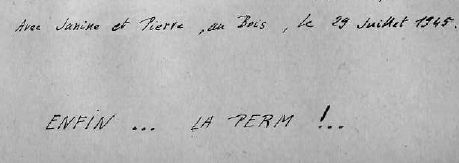 Avec Janine et Pierre, au Bois, le 29 Juillet 1945.
ENFIN ... LA PERM !..